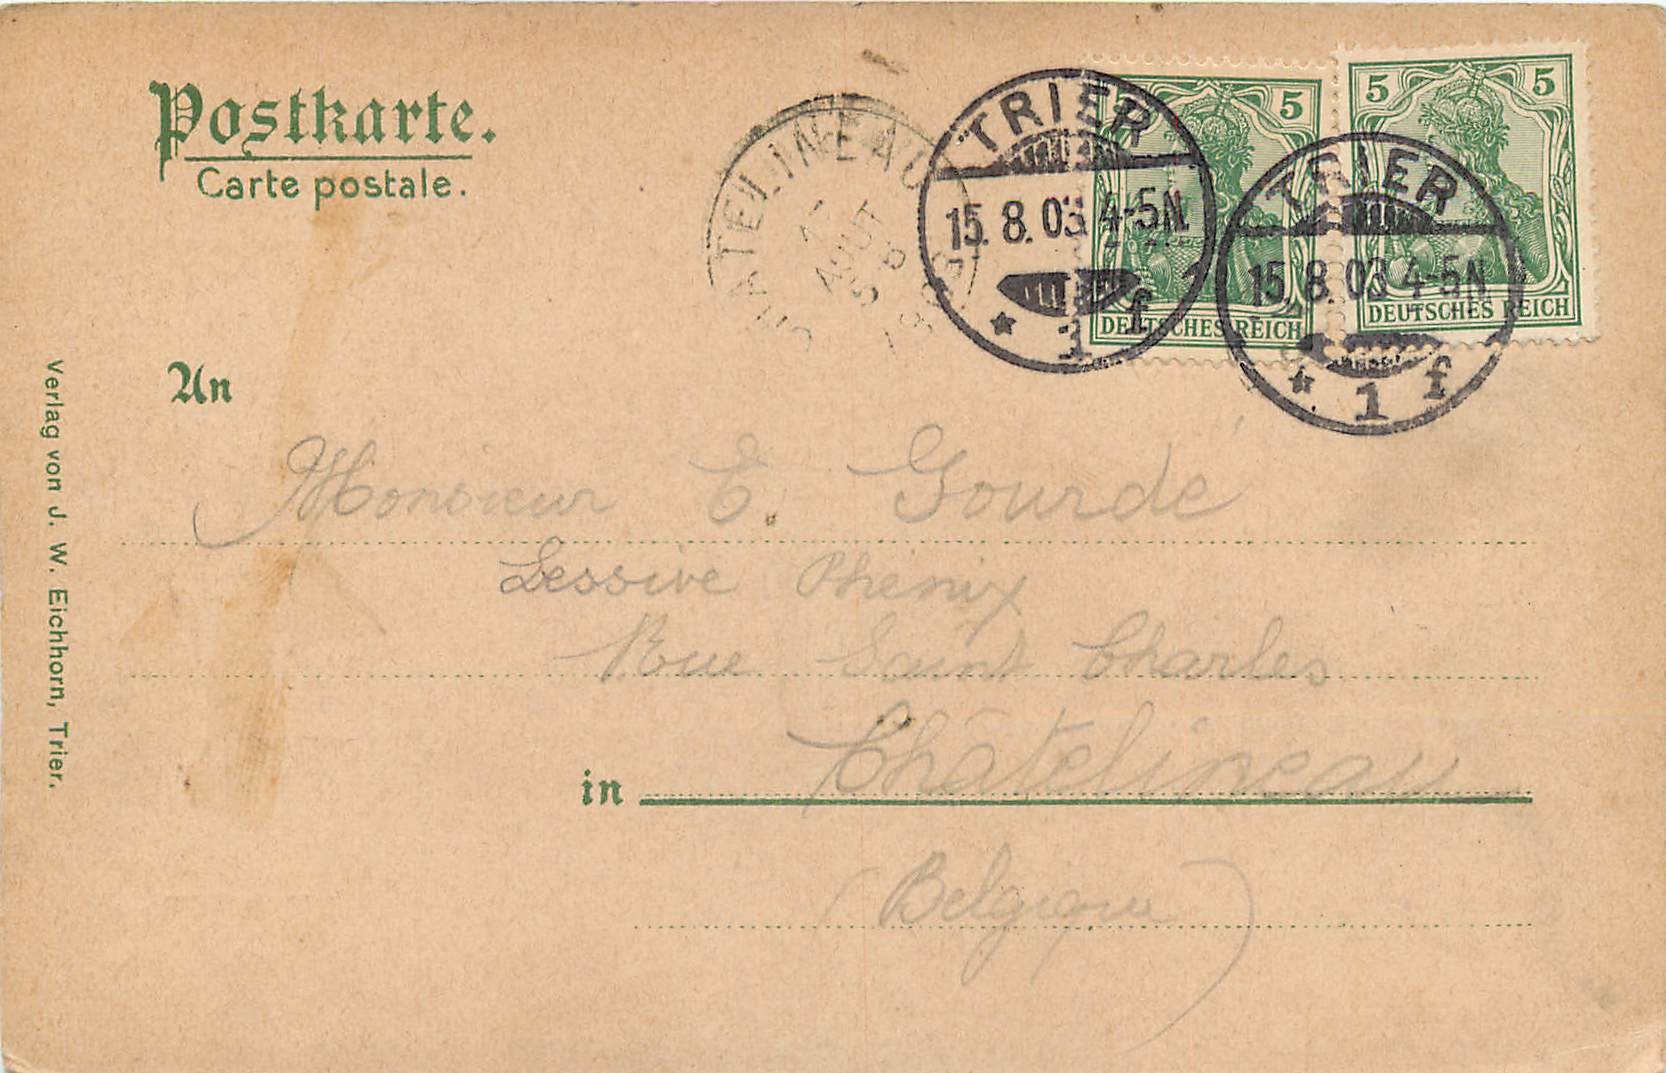 Postkarte.
Carte postale.
CHATELINEAU
AOUT
1903
TRIER
15. 8. 03. 4-5N.
* 1 f
TRIER
15. 8. 03 4-5N
* 1 f
5
DEUTSCHES REICH
5 5
DEUTSCHES REICH
An
Monsieur E. Gourde
Lessive Phenix
Rue Saint Charles
in Châtelineau
(Belgique)
Verlag von J. W. Eichhorn, Trier.